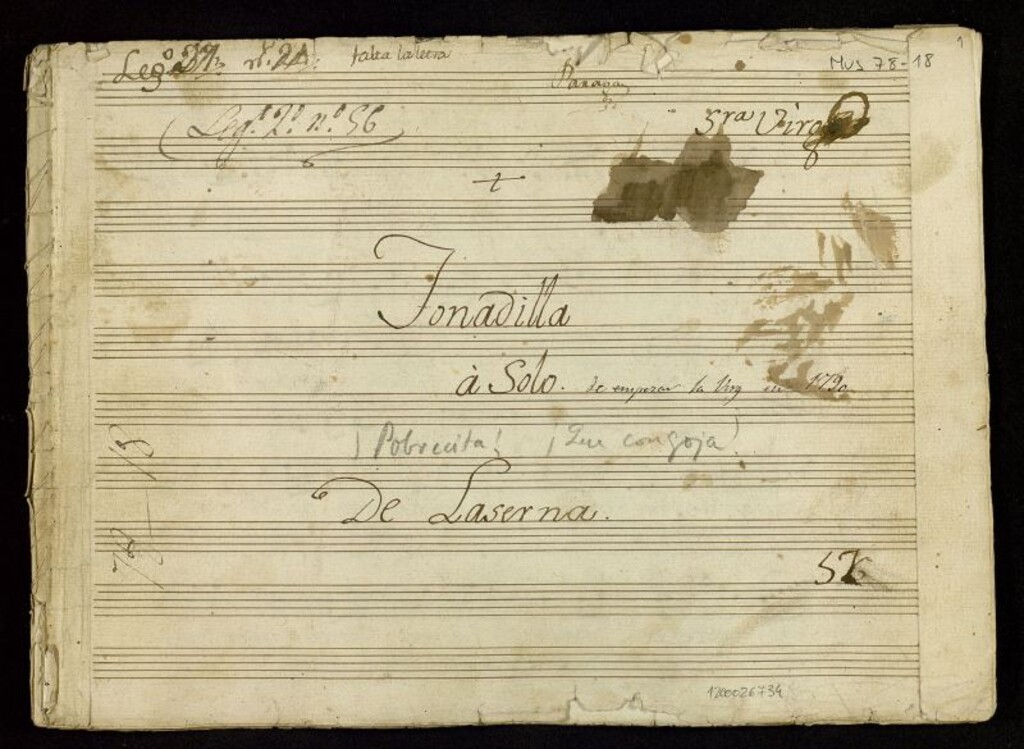 Leg.º 37. n.º 21. falta la letra
Mus 78-18
1
Leg.º 2.º n.º 56
Sra Virg
Tonadilla
à Solo. de empezar la Virg en 1790
¡Pobrecita! ¡Que congoja!
De Laserna.
1200026734